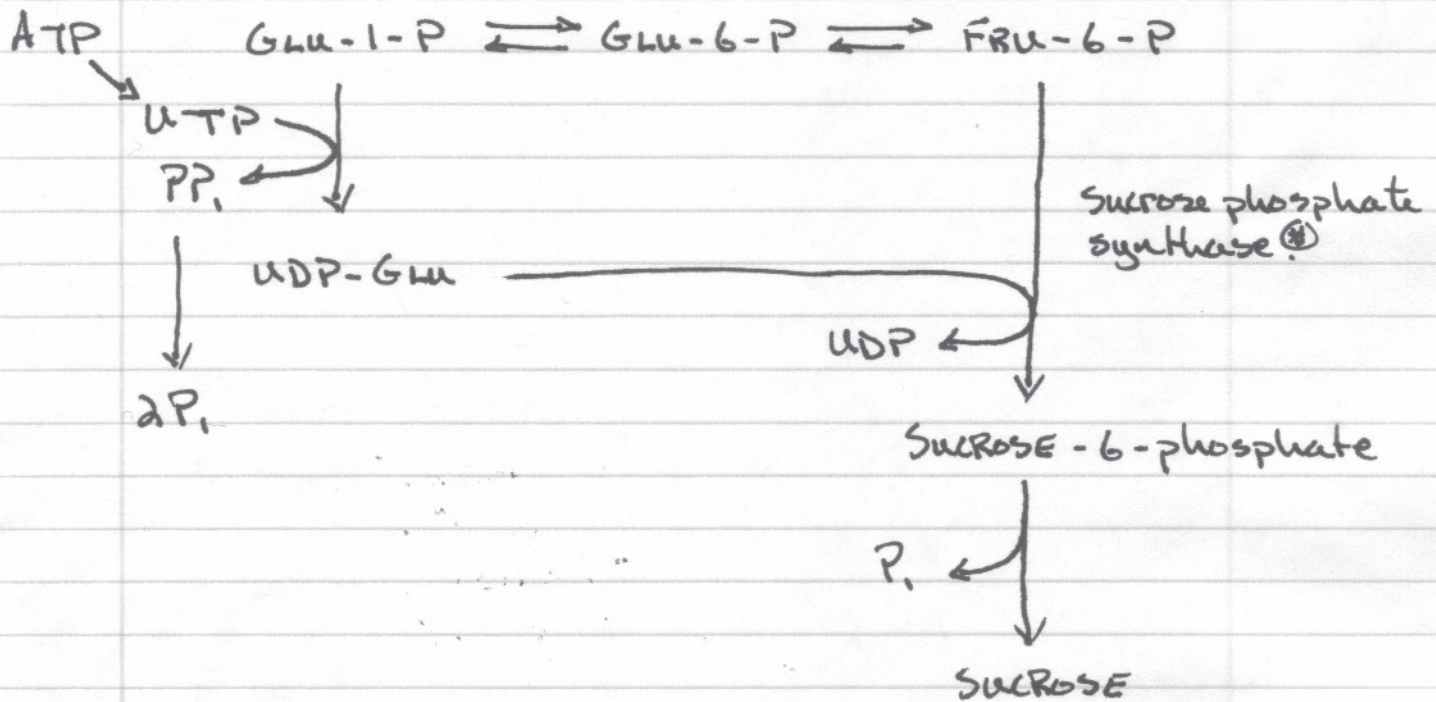 ATP GLU-1-P ⇌ GLU-6-P ⇌ FRU-6-P
UTP
PPi
Sucrose phosphate
synthase *
UDP-GLU
UDP
2Pi
SUCROSE-6-phosphate
Pi
SUCROSE